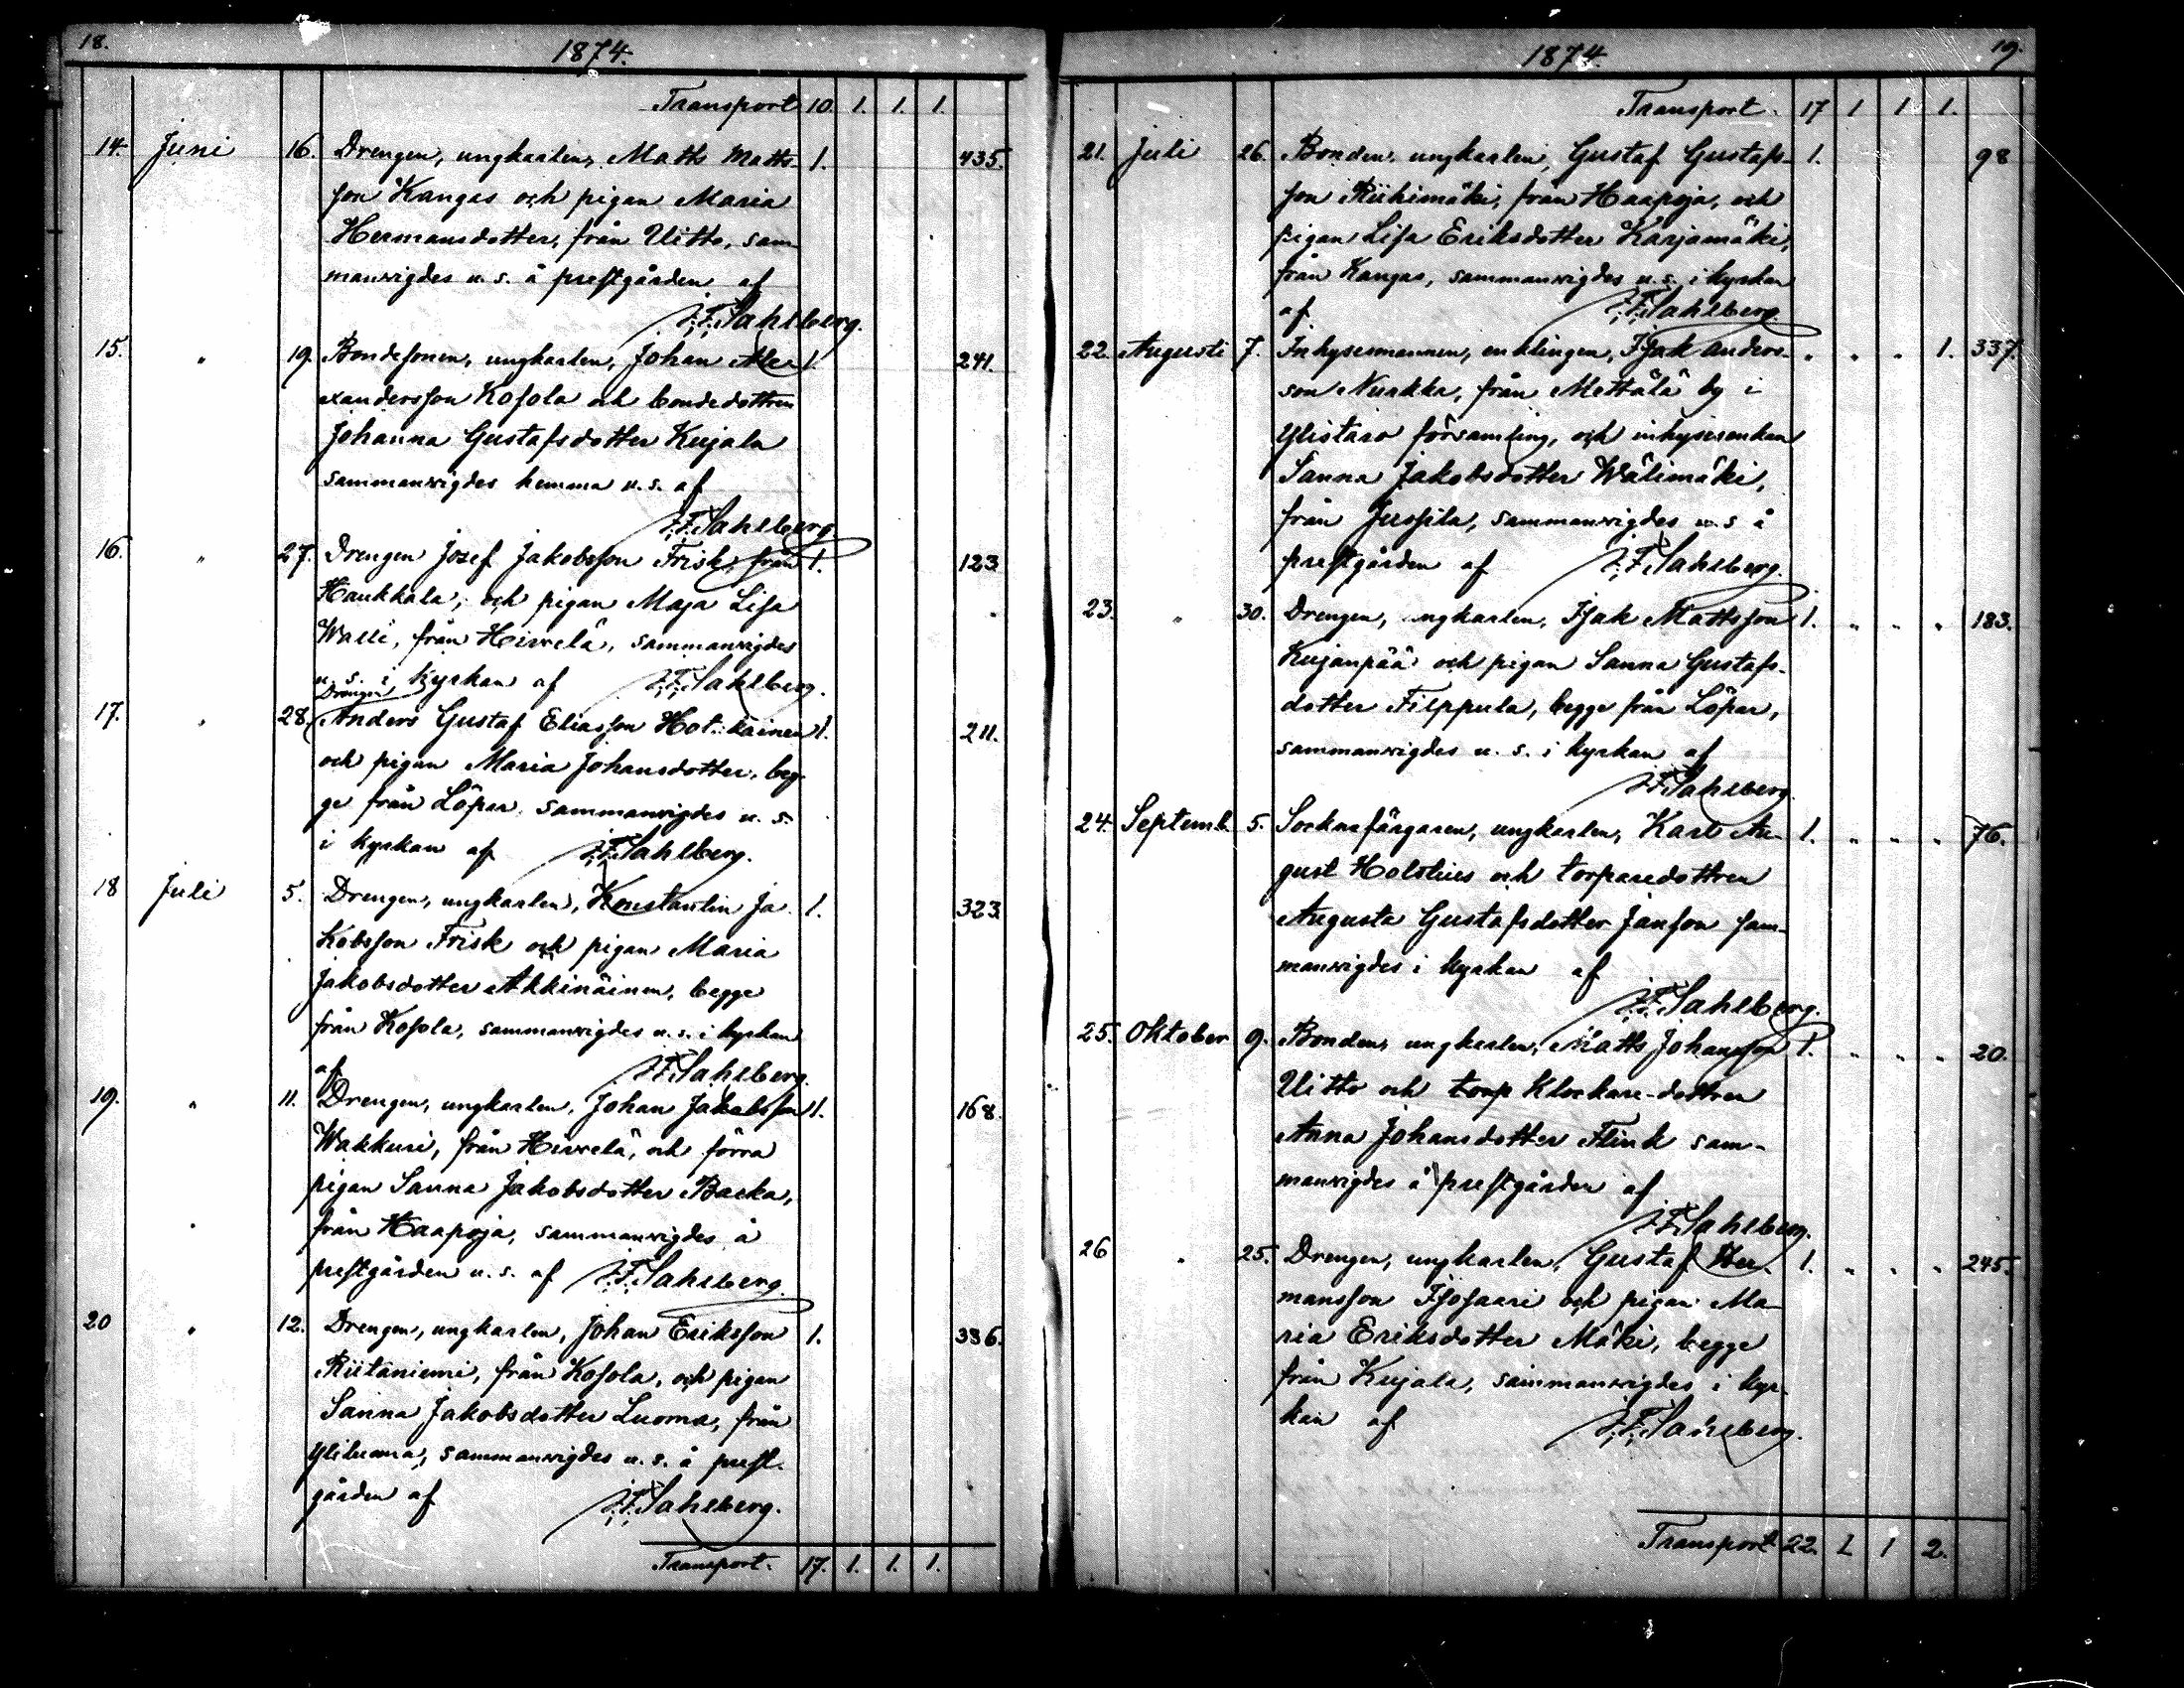 18.
1874.
Transport 10. 1. 1. 1.
14. Juni 16. Drengen, ungkarlen, Matts Matts- 1. 435.
son Kangas och pigan Maria
Hermansdotter, från Uitto, sam-
manvigdes u. s. å prestgården af
J. F. Sahlberg.
15. " 19. Bondesonen, ungkarlen, Johan Ale- 1. 241.
xandersson Kosola och bondedottren
Johanna Gustafsdotter Kujala
sammanvigdes hemma u. s. af
J. F. Sahlberg
16. " 27. Drengen Josef Jakobsson Frisk, från 1. 123
Haukkala, och pigan Maja Lisa
Walli, från Hirvelä, sammanvigdes
u. s. i kyrkan af J. F. Sahlberg.
Drengen
17. " 28. Anders Gustaf Eliasson Hot kainen 1. 211.
och pigan Maria Johansdotter, beg-
ge från Löpar, sammanvigdes u. s.
i kyrkan af J. F. Sahlberg.
18 Juli 5. Drengen, ungkarlen, Konstantin Ja- 1. 323.
kobsson Frisk och pigan Maria
Jakobsdotter Akkinäinen, begge
från Kosola, sammanvigdes u. s. i kyrkan
af J. F. Sahlberg.
19. " 11. Drengen, ungkarlen, Johan Jakobsson 1. 168.
Wakkuri, från Hirvelä, och förra
pigan Sanna Jakobsdotter Backa,
från Haapoja, sammanvigdes å
prestgården u. s. af J. F. Sahlberg.
20 " 12. Drengen, ungkarlen, Johan Eriksson 1. 336.
Riitaniemi, från Kosola, och pigan
Sanna Jakobsdotter Luoma, från
Yliluoma, sammanvigdes u. s. å prest-
gården af J. F. Sahlberg.
Transport. 17. 1. 1. 1.
1874. 19.
Transport. 17 1 1 1.
21. Juli 26. Bonden, ungkarlen, Gustaf Gustafs- 1. 98
son Riihimäki, från Haapoja, och
pigan Lisa Eriksdotter Karjamäki,
från Kangas, sammanvigdes u. s. i kyrkan
af J. F. Sahlberg.
22. Augusti 7. Inhysesmannen, enklingen, Isak Anders- " " " 1. 337.
son Nurkka, från Mettälä by i
Ylistaro församling, och inhysesenkan
Sanna Jakobsdotter Wälimäki,
från Jussila, sammanvigdes u. s å
prestgården af J. F. Sahlberg.
23. " 30. Drengen, ungkarlen, Isak Mattsson 1. " " " 183.
Kujanpää och pigan Sanna Gustafs-
dotter Filppula, begge från Löpar,
sammanvigdes u. s. i kyrkan af
J. F. Sahlberg
24. Septemb. 5. Sockenfärgaren, ungkarlen, Karl Au- 1. " " " 76.
gust Holstius och torparedottren
Augusta Gustafsdotter Janson sam-
manvigdes i kyrkan af
J. F. Sahlberg.
25. Oktober 9. Bonden, ungkarlen, Matts Johansson 1. " " " 20.
Uitto och torp Klockare-dottren
Anna Johansdotter Flink sam-
manvigdes å prestgården af
J. F. Sahlberg.
26 " 25. Drengen, ungkarlen, Gustaf Her- 1. " " " 245.
mansson Isosaari och pigan Ma-
ria Eriksdotter Mäki, begge
från Kujala, sammanvigdes i kyr-
kan af J. F. Sahlberg.
Transport 22. 1 1 2.